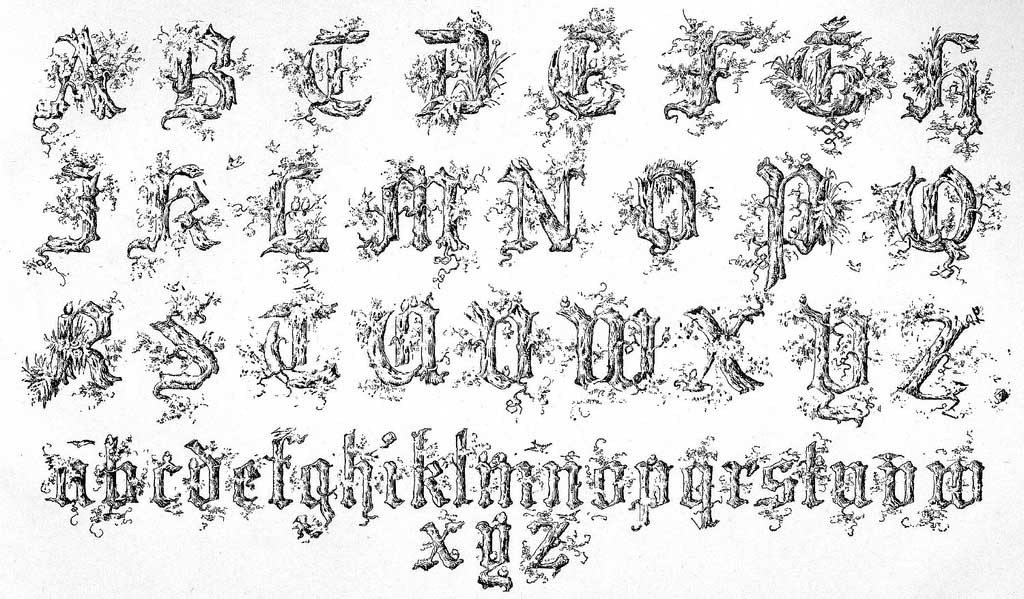 A B C D E F G H
I K L M N O P Q
R S T U V W X Y Z .
a b c d e f g h i k l m n o p q r s t u v w
x y z